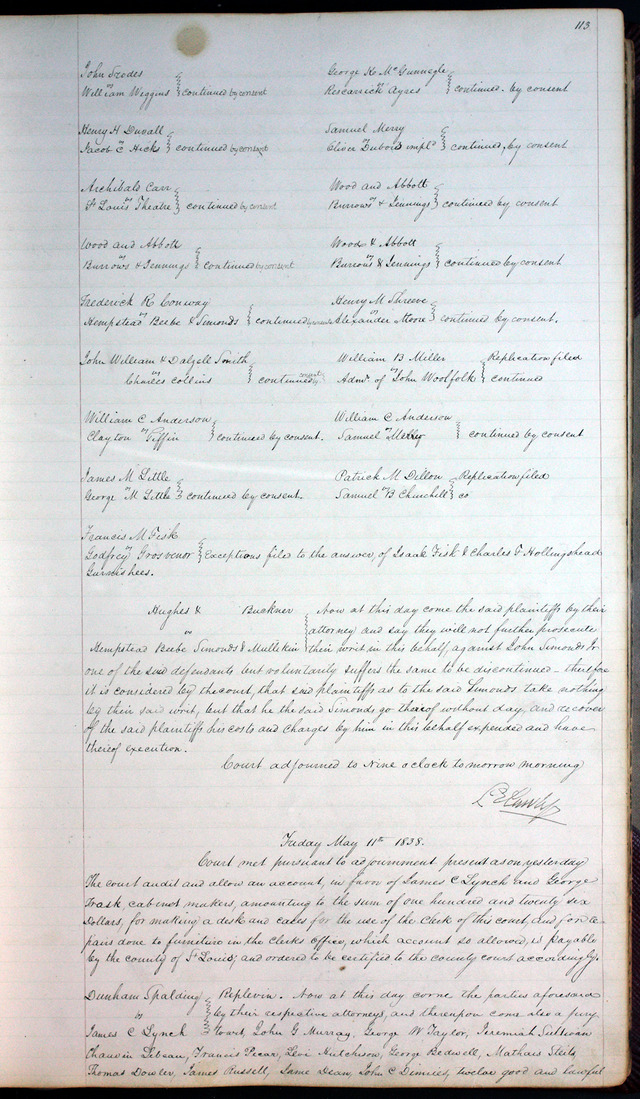 113
John Srodes
vs
William Wiggins } continued by consent
George K. McGunnegle
vs
Rescarrick Ayres } continued by consent
Henry H Duvall
vs
Jacob C Hicks } continued by consent
Samuel Merry
vs
Oliver Dubois impld } continued, by consent
Archibald Carr
vs
St Louis Theatre } continued by consent
Wood and Abbott
vs
Burrows & Jennings } continued by consent
Wood and Abbott
vs
Burrows & Jennings } continued by consent
Wood & Abbott
vs
Burrows & Jennings } continued by consent
Frederick R Conway
vs
Hempstead Beebe & Simonds } continued by consent
Henry M Shreve
vs
Alexander Moore } continued by consent.
John William & Dalzell Smith
vs
Charles Collins } continued by consent
William B Miller
vs
Admr. of John Woolfolk } Replication filed
continued
William C Anderson
vs
Clayton Tiffin } continued by consent.
William C Anderson
vs
Samuel Merry } continued by consent
James M Little
vs
George M Little } continued by consent.
Patrick M Dillon
vs
Samuel B Churchill } Replication filed
co
Francis M Fisk
vs
Godfrey Grosvenor } Exceptions filed to the answer, of Isaak Fisk & Charles T Hollingshead
Garnishees.
Hughes & Buckner
vs
Hempstead Beebe Simonds & Mullekin
Now at this day come the said plaintiffs by their
attorney and say they will not further prosecute
their writ in this behalf, against John Simonds Jr
one of the said defendants but voluntarily suffers the same to be discontinued – therefore
it is considered by the court, that said plaintiffs as to the said Simonds take nothing
by their said writ, but that he the said Simonds go thereof without day, and recover
of the said plaintiffs his costs and charges by him in this behalf expended and have
thereof execution.
Court adjourned to Nine oclock to morrow morning
Friday May 11th 1838.
Court met pursuant to adjournment present as on, yesterday
The court audit and allow an account, in favor of James C Lynch and George
Trask cabinet makers, amounting to the sum of one hundred and twenty six
Dollars, for making a desk and cases for the use of the Clerk of this court, and for re-
pairs done to furniture in the Clerks office, which account so allowed, is payable
by the county of St Louis, and ordered to be certified to the county court accordingly.
Dunham Spalding
vs
James C Lynch
Replevin. Now at this day come the parties aforesaid
by their respective attorneys, and thereupon come also a jury,
towit, John G Murray, George W Taylor, Jeremiah Sullivan
Chauvin Lebeau, Francis Pecar, Levi Hutchison, George Bedwell, Mathais Steitz
Thomas Dowler, James Russell, Jame Dean, John C Dinnies, twelve good and lawful